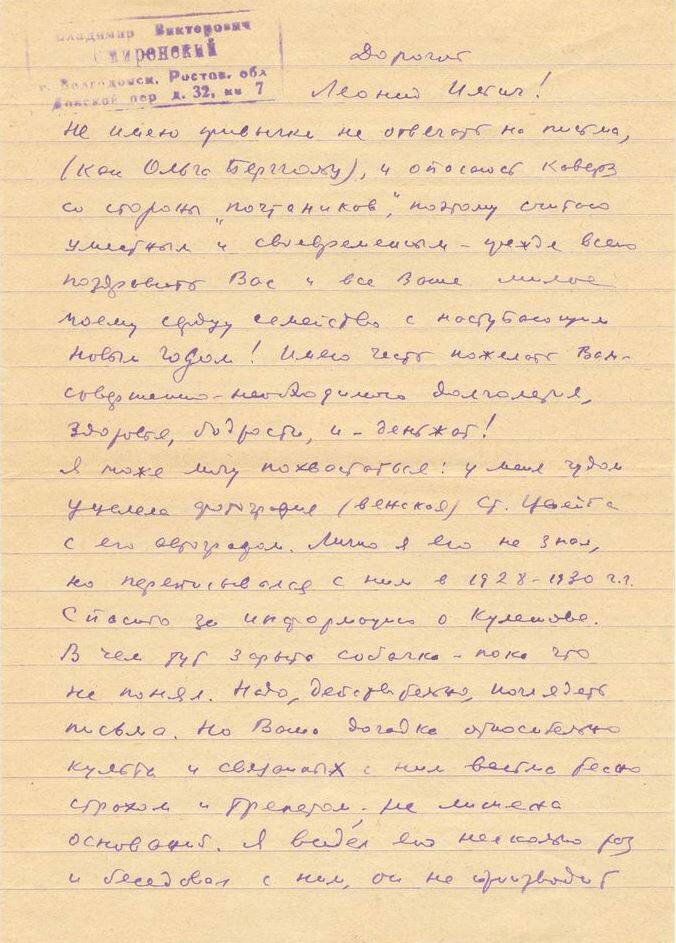 Владимир Викторович
Смиренский
г. Волгодонск, Ростов. обл
Донской пер д. 32, кв 7
Дорогой
Леонид Ильич!
Не имею привычки не отвечать на письма,
(как Ольга Берггольц), и опасаюсь каверз
со стороны "почтаников", поэтому считаю
уместным и своевременным – прежде всего
поздравить Вас и все Ваше милое
моему сердцу семейство с наступающим
новым годом! Имею честь пожелать Вам –
совершенно-необходимого долголетия,
здоровья, бодрости, и – деньжат!
Я тоже могу похвастаться: у меня чудом
уцелела фотография (венская) Ст. Цвейга
с его автографом. Лично я его не знал,
но переписывался с ним в 1928-1930 г.г.
Спасибо за информацию о Кулешове.
В чем тут зарыта собачка – пока что
не понял. Надо, действительно, поглядеть
письма. Но Ваша догадка относительно
культа и связанных с ним
страхом и трепетом, не лишена
оснований. Я видел его несколько раз
и беседовал с ним, он не производит